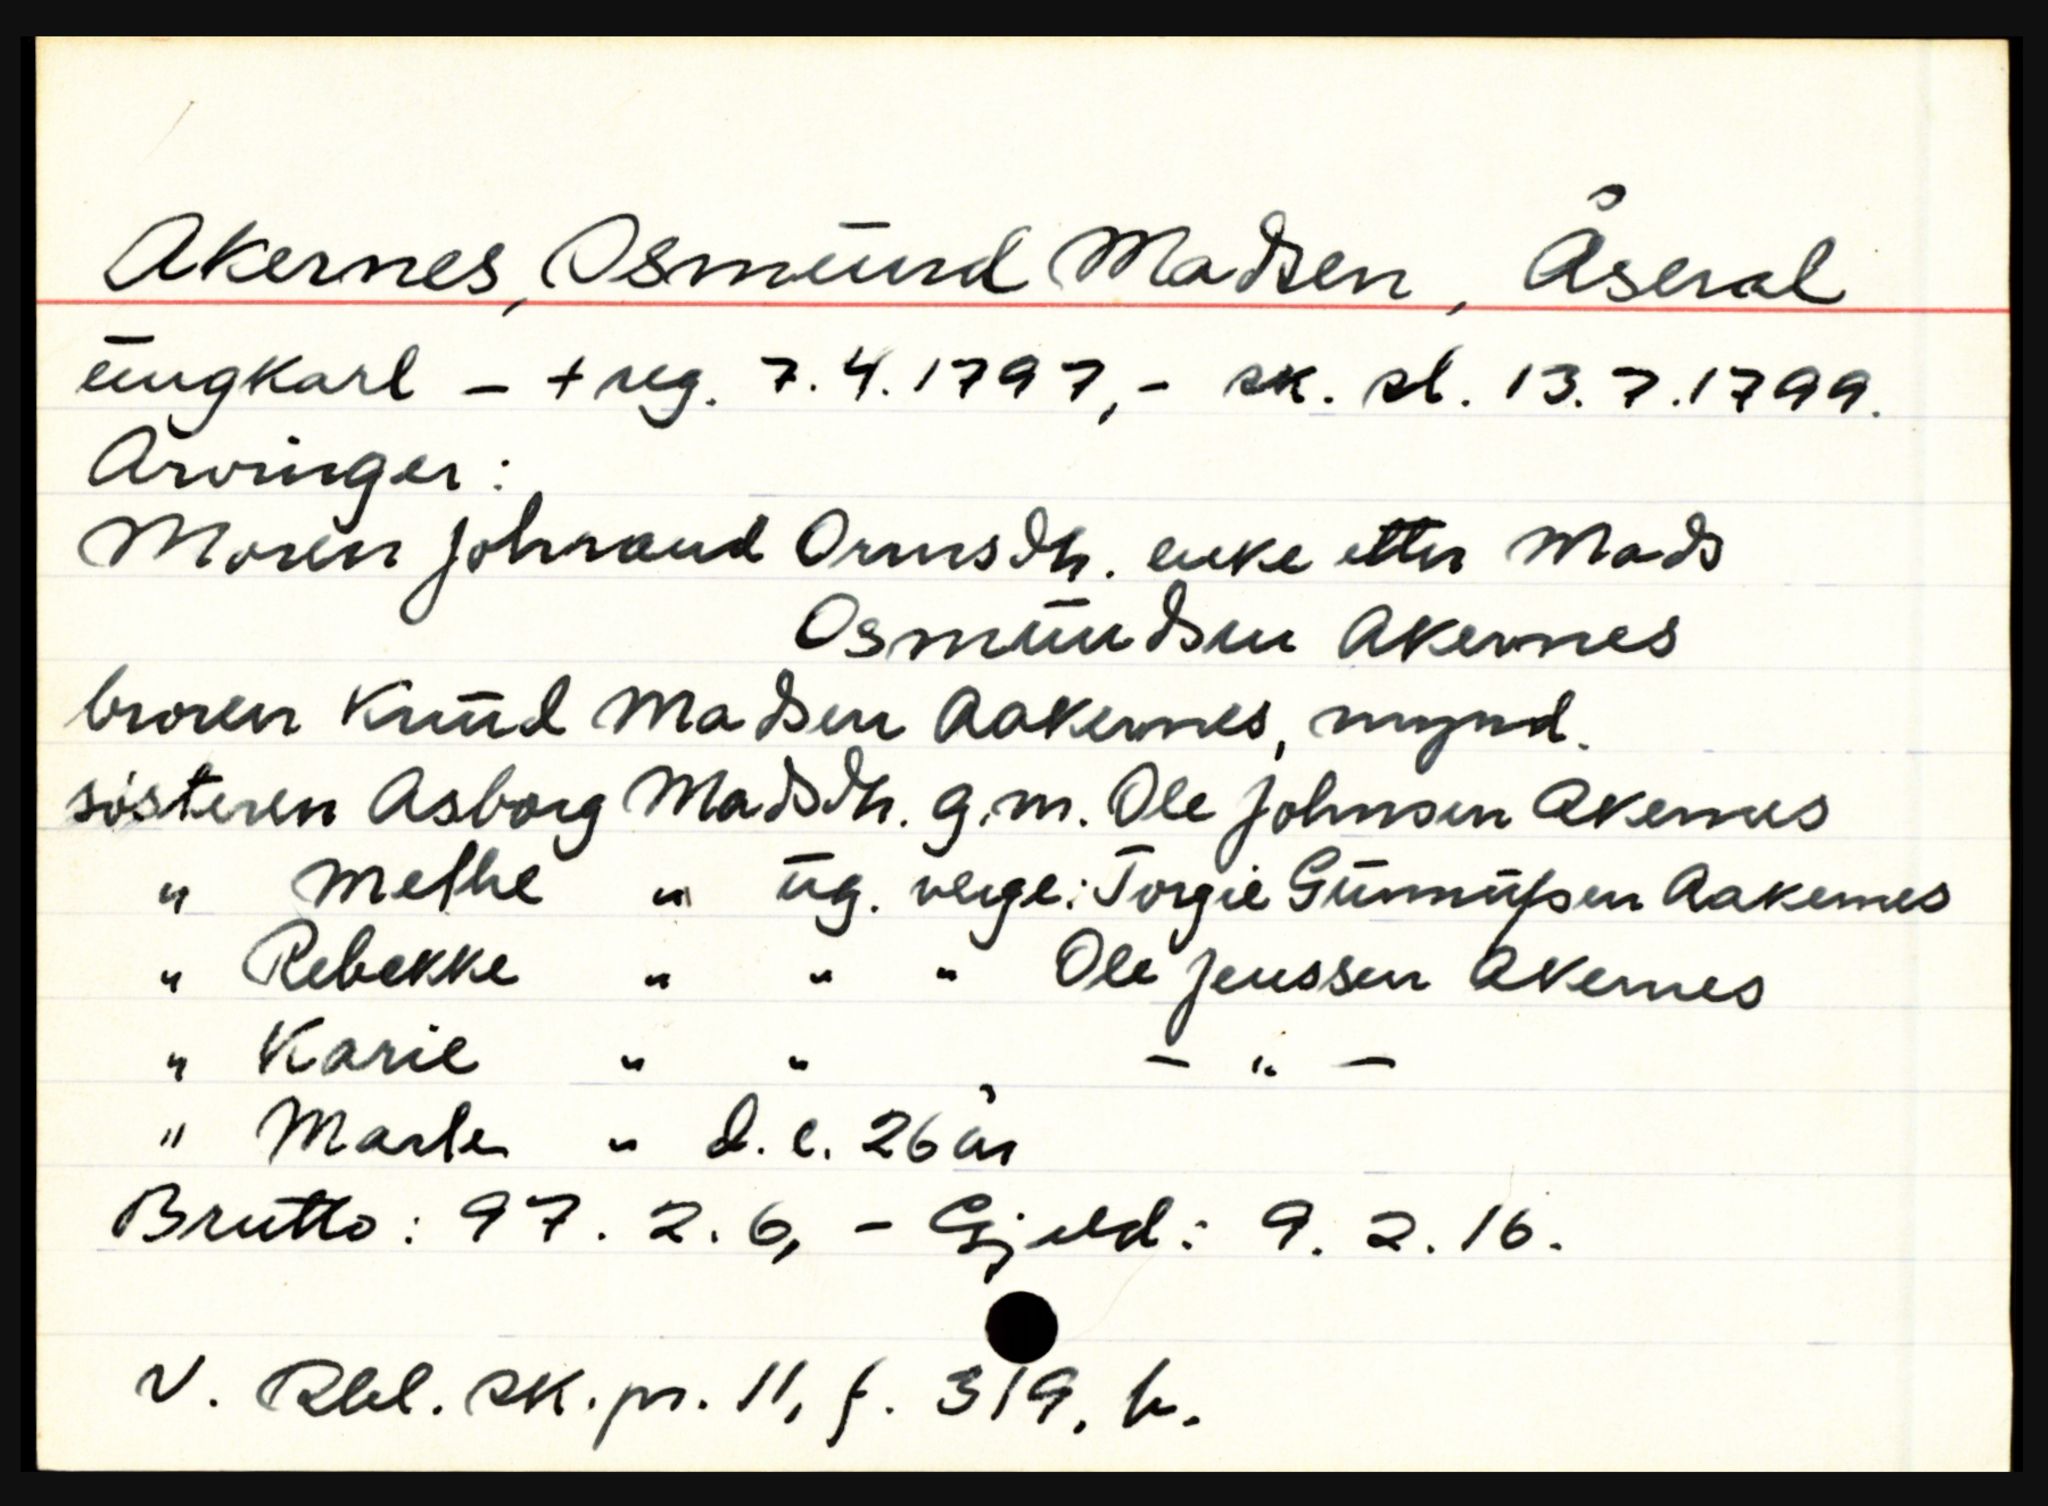 Akernes, Osmund Madsen, Åseral
ungkarl - + reg. 7.4.1797, - sk. sl. 13.7.1799.
Arvinger:
Moren Johnaud Ormsdtr. enke etter Mads
Osmundsen Akernes
broren Knud Madsen Aakernes, mynd.
søsteren Asborg Madsdtr. g.m. Ole Johnsen Akernes
" Methe " ug. verge: Torgie Gunnufsen Aakernes
" Rebekke " " " Ole Jenssen Akernes
" Karie " " - " -
" Marte " d.e. 26 år
Brutto: 97. 2. 6, - Gjeld: 9. 2. 16.
V. Rbl. sk. pr. 11, f. 319, b.